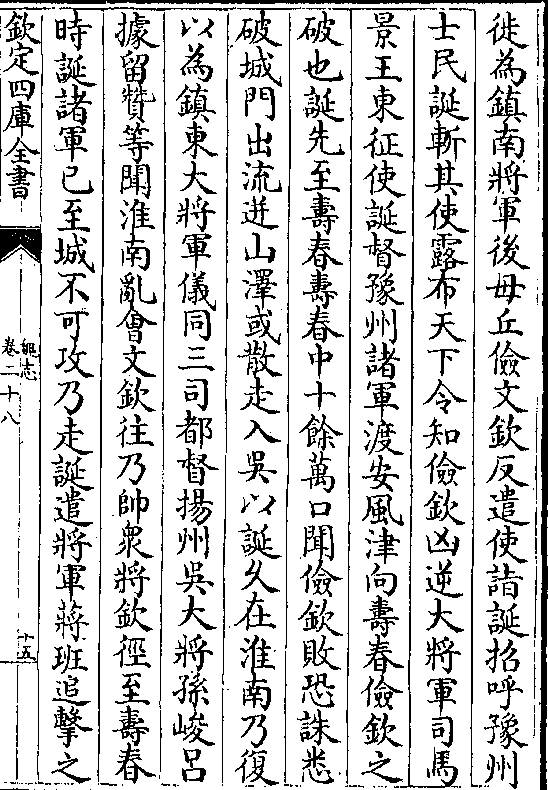 徙為鎮南將軍後毋丘儉文欽反遣使詣誕招呼豫州
士民誕斬其使露布天下令知儉欽凶逆大將軍司馬
景王東征使誕督豫州諸軍渡安風津向壽春儉欽之
破也誕先至壽春壽春中十餘萬口聞儉欽敗恐誅悉
破城門出流迸山澤或散走入吳以誕久在淮南乃復
以為鎮東大將軍儀同三司都督揚州吳大將孫峻呂
據留贊等聞淮南亂會文欽往乃帥衆將欽徑至壽春
時誕諸軍已至城不可攻乃走誕遣將軍蔣班追擊之
欽定四庫全書
魏志
卷二十八
十五